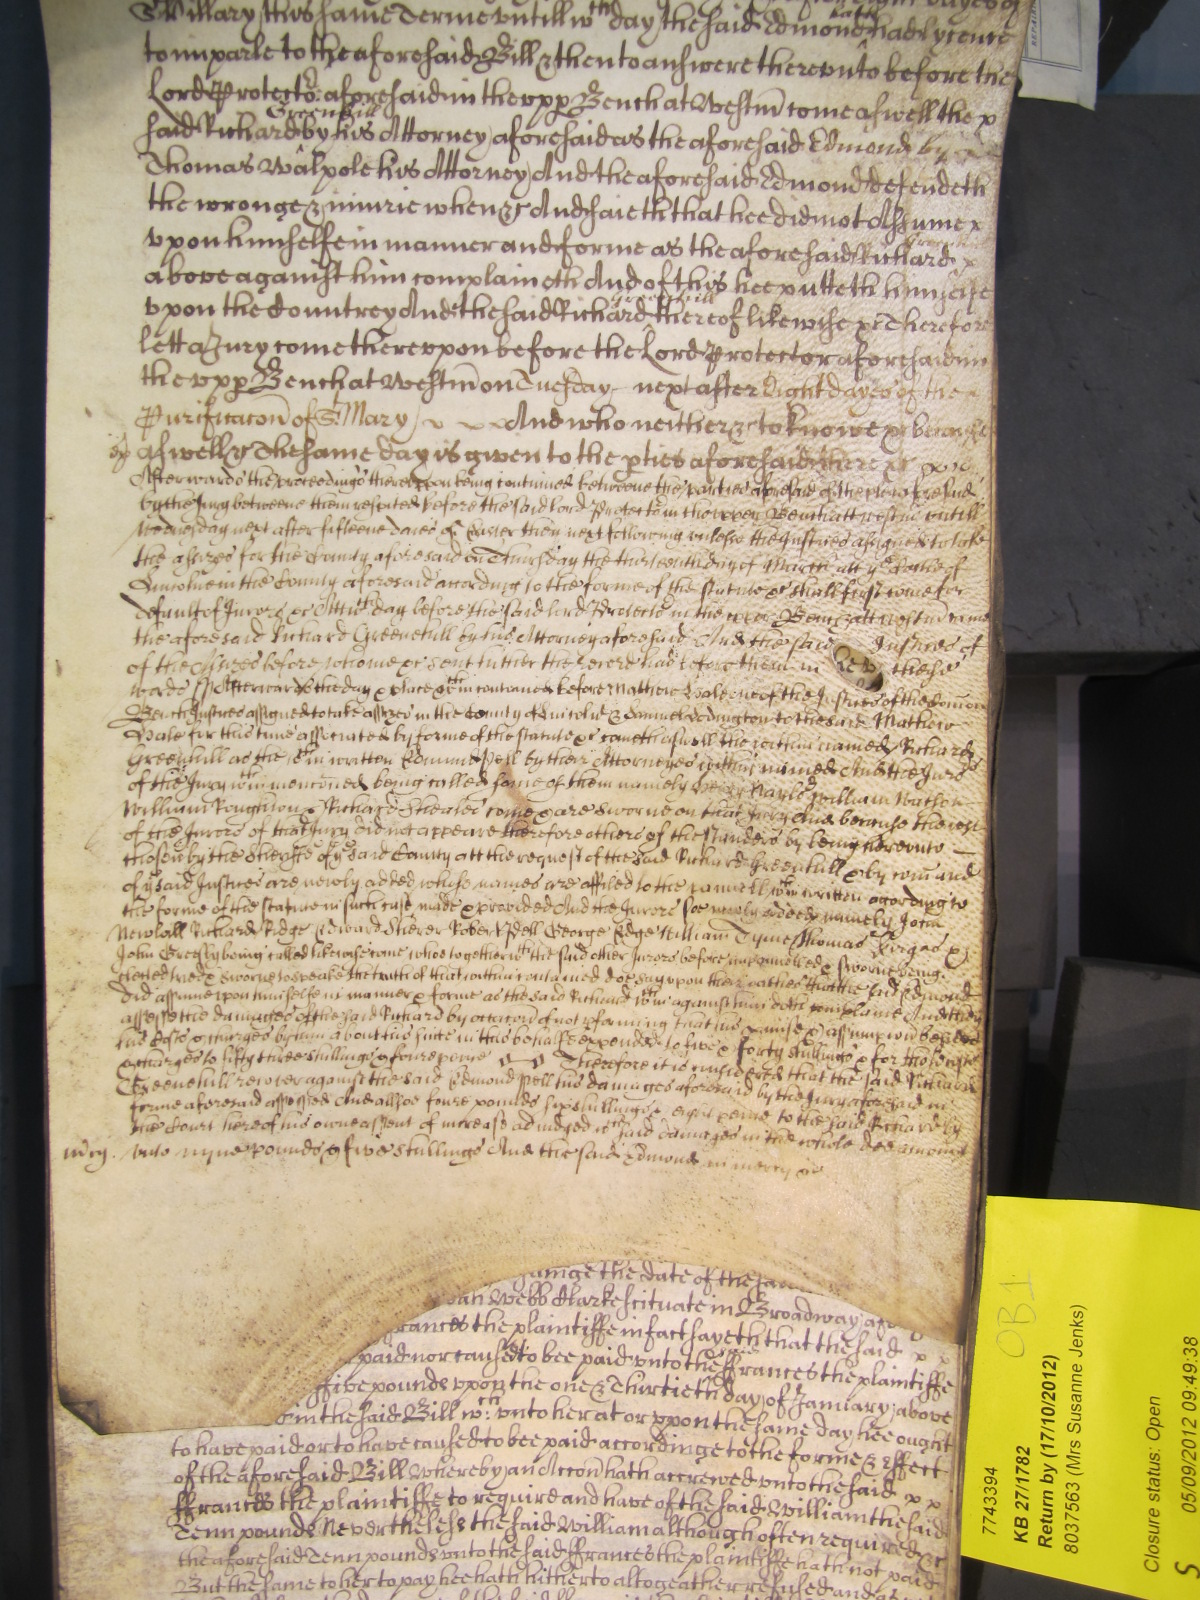 St Hillary this same Terme untill wch day the said Edmond hadd lycence
to imparle to the aforesaid Bill & then to answere thereunto before the
Lord Protector aforesaid in the upp Bench at Westm come aswell the
Greenhill
said Richard by his Attorney aforesaid as the aforesaid Edmond by
Thomas Walpole his Attorney And the aforesaid Edmond defendeth
the wronge & iniurie when &c And saieth that hee did not Assume x
upon himselfe in manner and forme as the aforesaid Richard x
above against him complaineth And of this hee putteth himselfe
Greenhill
upon the Countrey And the said Richard thereof likewise &c Therefore
lett a Jury come thereupon before the Lord Protector aforesaid in
the upp Bench at Westm on Tuesday next after Eight dayes of the
Purificacon of St Mary And who neither &c to knowe &c because
aswell &c The same day is given to the pties aforesaid there &c
Afterwards the proceedings thereupon being continued betweene the parties aforesaid of the plea aforesaid
by the Jury betweene them respited before the said lord Protector in the upper Bench att westm untill
Wednesday next after fifteene daies of Easter then next following unlesse the Justices assigned to take
the assizes for the County aforesaid on Thursday the thirteenth day of March att ye Castle of
Lincolne in the County aforesaid according to the forme of the statute &c shall first come for
default of Jurors &c Att wch day before the said lord Protector in the upper Bench att westm came
the aforesaid Richard Greenehill by his Attorney aforesaid And the said Justices of
of the Assizes before whome &c sent hither the record had before them in these
words ss Afterwards the day & place wthin contained before Mathew Hale one of the Justices of the Comon
Bench Justices assigned to take assizes in the County of Lincolne & Samuel Dodington to the said Mathew
Hale for this time associated by forme of the statute &c came aswell the within named Richard
Greenhill as the wthin written Edmund Pell by their Attorneyes within named And the Jurors
of the Jury wthin mencioned being called some of them namely William Watson
William & Richard come & are sworne on that Jury And because the rest
of the Jurors of that Jury did not appeare therefore others of the standers by being hereunto
chosen by the Sheriffe of ye said County att the request of the said Richard Greenhill & by comand
of ye said Justices are newly added whose names are affiled to the pannell wthin written according to
the forme of the statute in such case made & provided And the Jurors soe newly added namely John
Newball Richard Ridge Edward Robert Dell George Edge William Tyme Thomas
John being called likewise come who together wth the said other Jurors before impannelled & sworne being
elected tried & sworne to speake the truth of that within contained doe say upon their oathes that the said Edmond
did assume upon himselfe in manner & forme as the said Richard wthin against him doth complaine And they
assesse the damages of the said Richard by occacon of not performing that his pmise & assumpcion besides
his costs & charges by him about his suite in this behalfe expended to five & forty shillings & for those costs
& charges to fifty three shillings & foure pence Therefore it is considered that the said Richard
Greenehill recover against the said Edmond Pell his damages aforesaid by the Jury aforesaid in
forme aforesaid assessed And allsoe foure pounds six shillings & eight pence to the said Richard by
the Court here of his owne assent of increase adiudged wch said damages in the whole doe amount
unto nyne Pounds & five shillings And the said Edmond in mercy &c
mcy.
againge the date of the
Webb Clarke scituate in Broadway
ffrances the plaintiffe in fact sayeth that the said x x
paid nor caused to bee paid unto the said ffrances the plaintiffe
ffive pounds uppon the one & Thirtieth day of January above
in the said Bill wch unto her at or uppon the same day hee ought
to have paid or to have caused to bee paid accordinge to the forme & effect
of the aforesaid Bill Whereby an Accon hath accrewed unto the said x x
ffrances the plaintiffe to require and have of the said William the said
Tenn pounds Neverthelesse the said William although often required &c
the aforesaid Tenn pounds unto the said ffrances the plaintiffe hath not paid
But the same to her to pay hee hath hitherto altogeather refused and
7743394
KB 27/1782
Return by (17/10/2012)
8037563 (Mrs Susanne Jenks)
Closure status: Open
S 05/09/2012 09:49:38
OB1